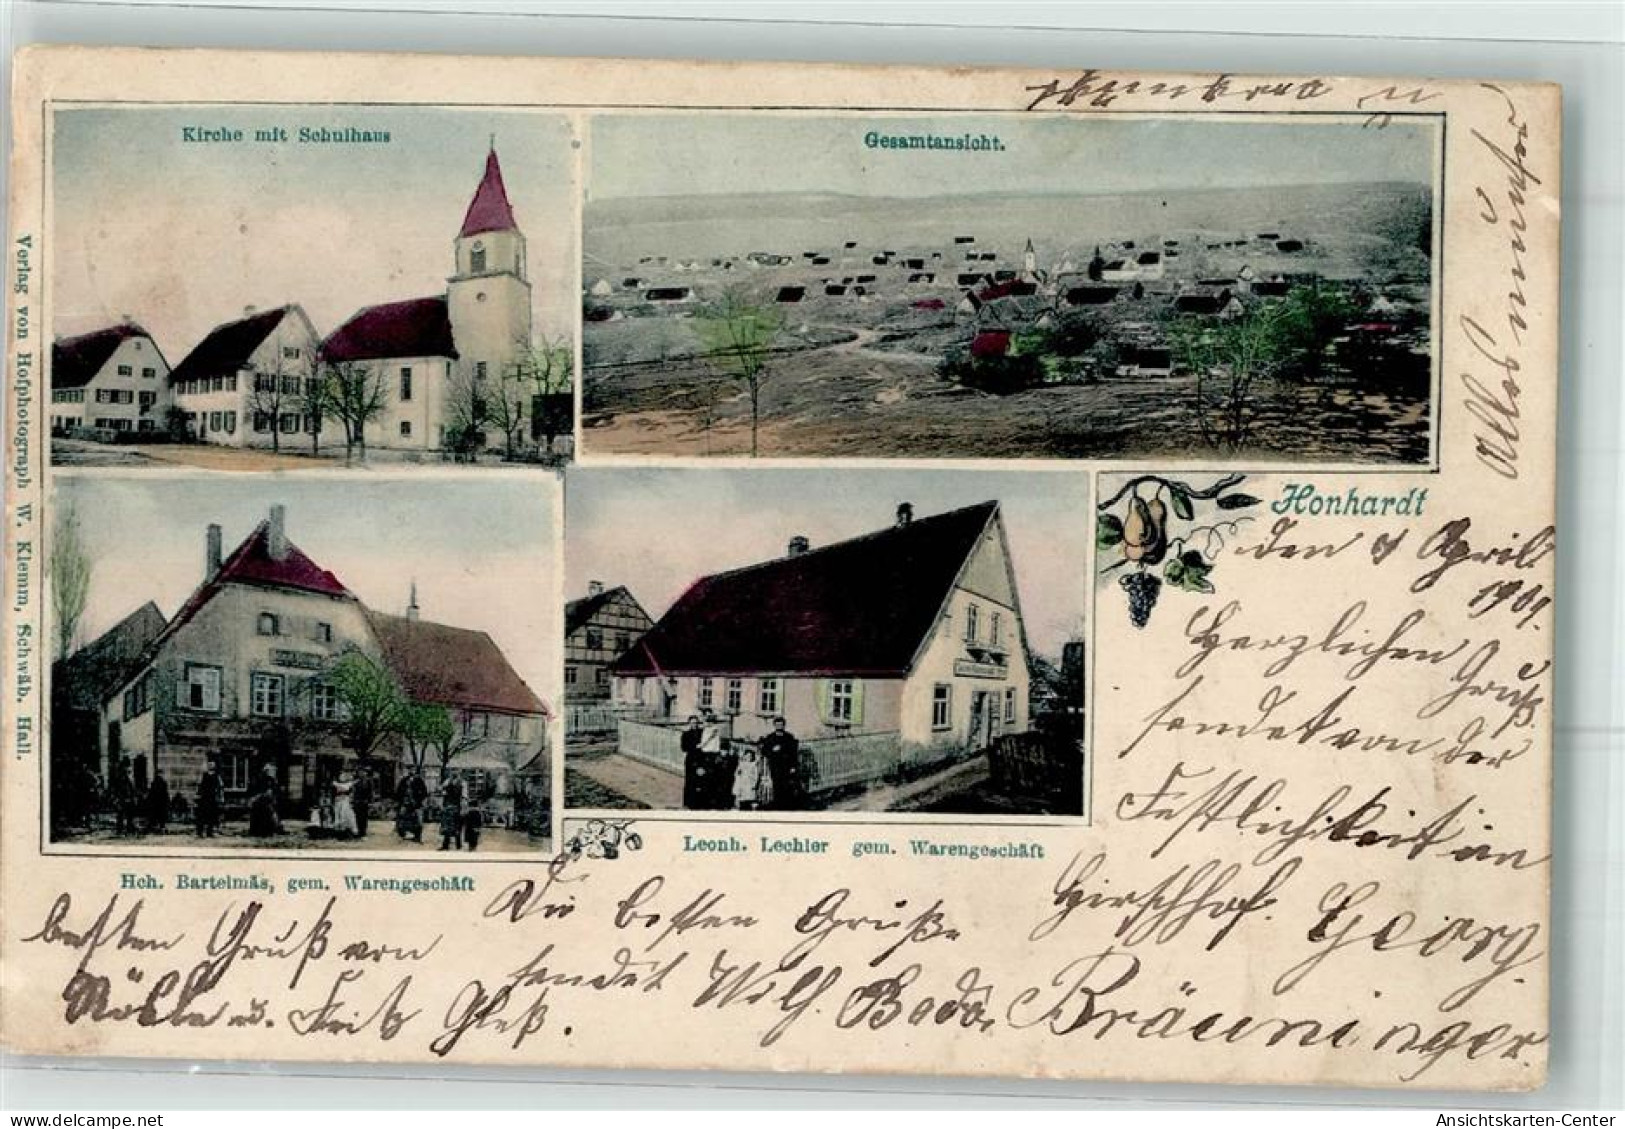 Kirche mit Schulhaus
Gesamtansicht.
Verlag von Hofphotograph W. Klemm, Schwäb. Hall.
Honhardt
Hch. Bartelmäs, gem. Warengeschäft
Leonh. Lechler gem. Warengeschäft
den April
1901.
Herzlichen Gruß
sendet von der
Festlichkeit in
Hirschhof. Georg
Bräuninger.
Die besten Grüße
sendet Wilh.
besten Gruß von
u. Fritz Gleß.
Alles munter
u
Ansichtskarten-Center